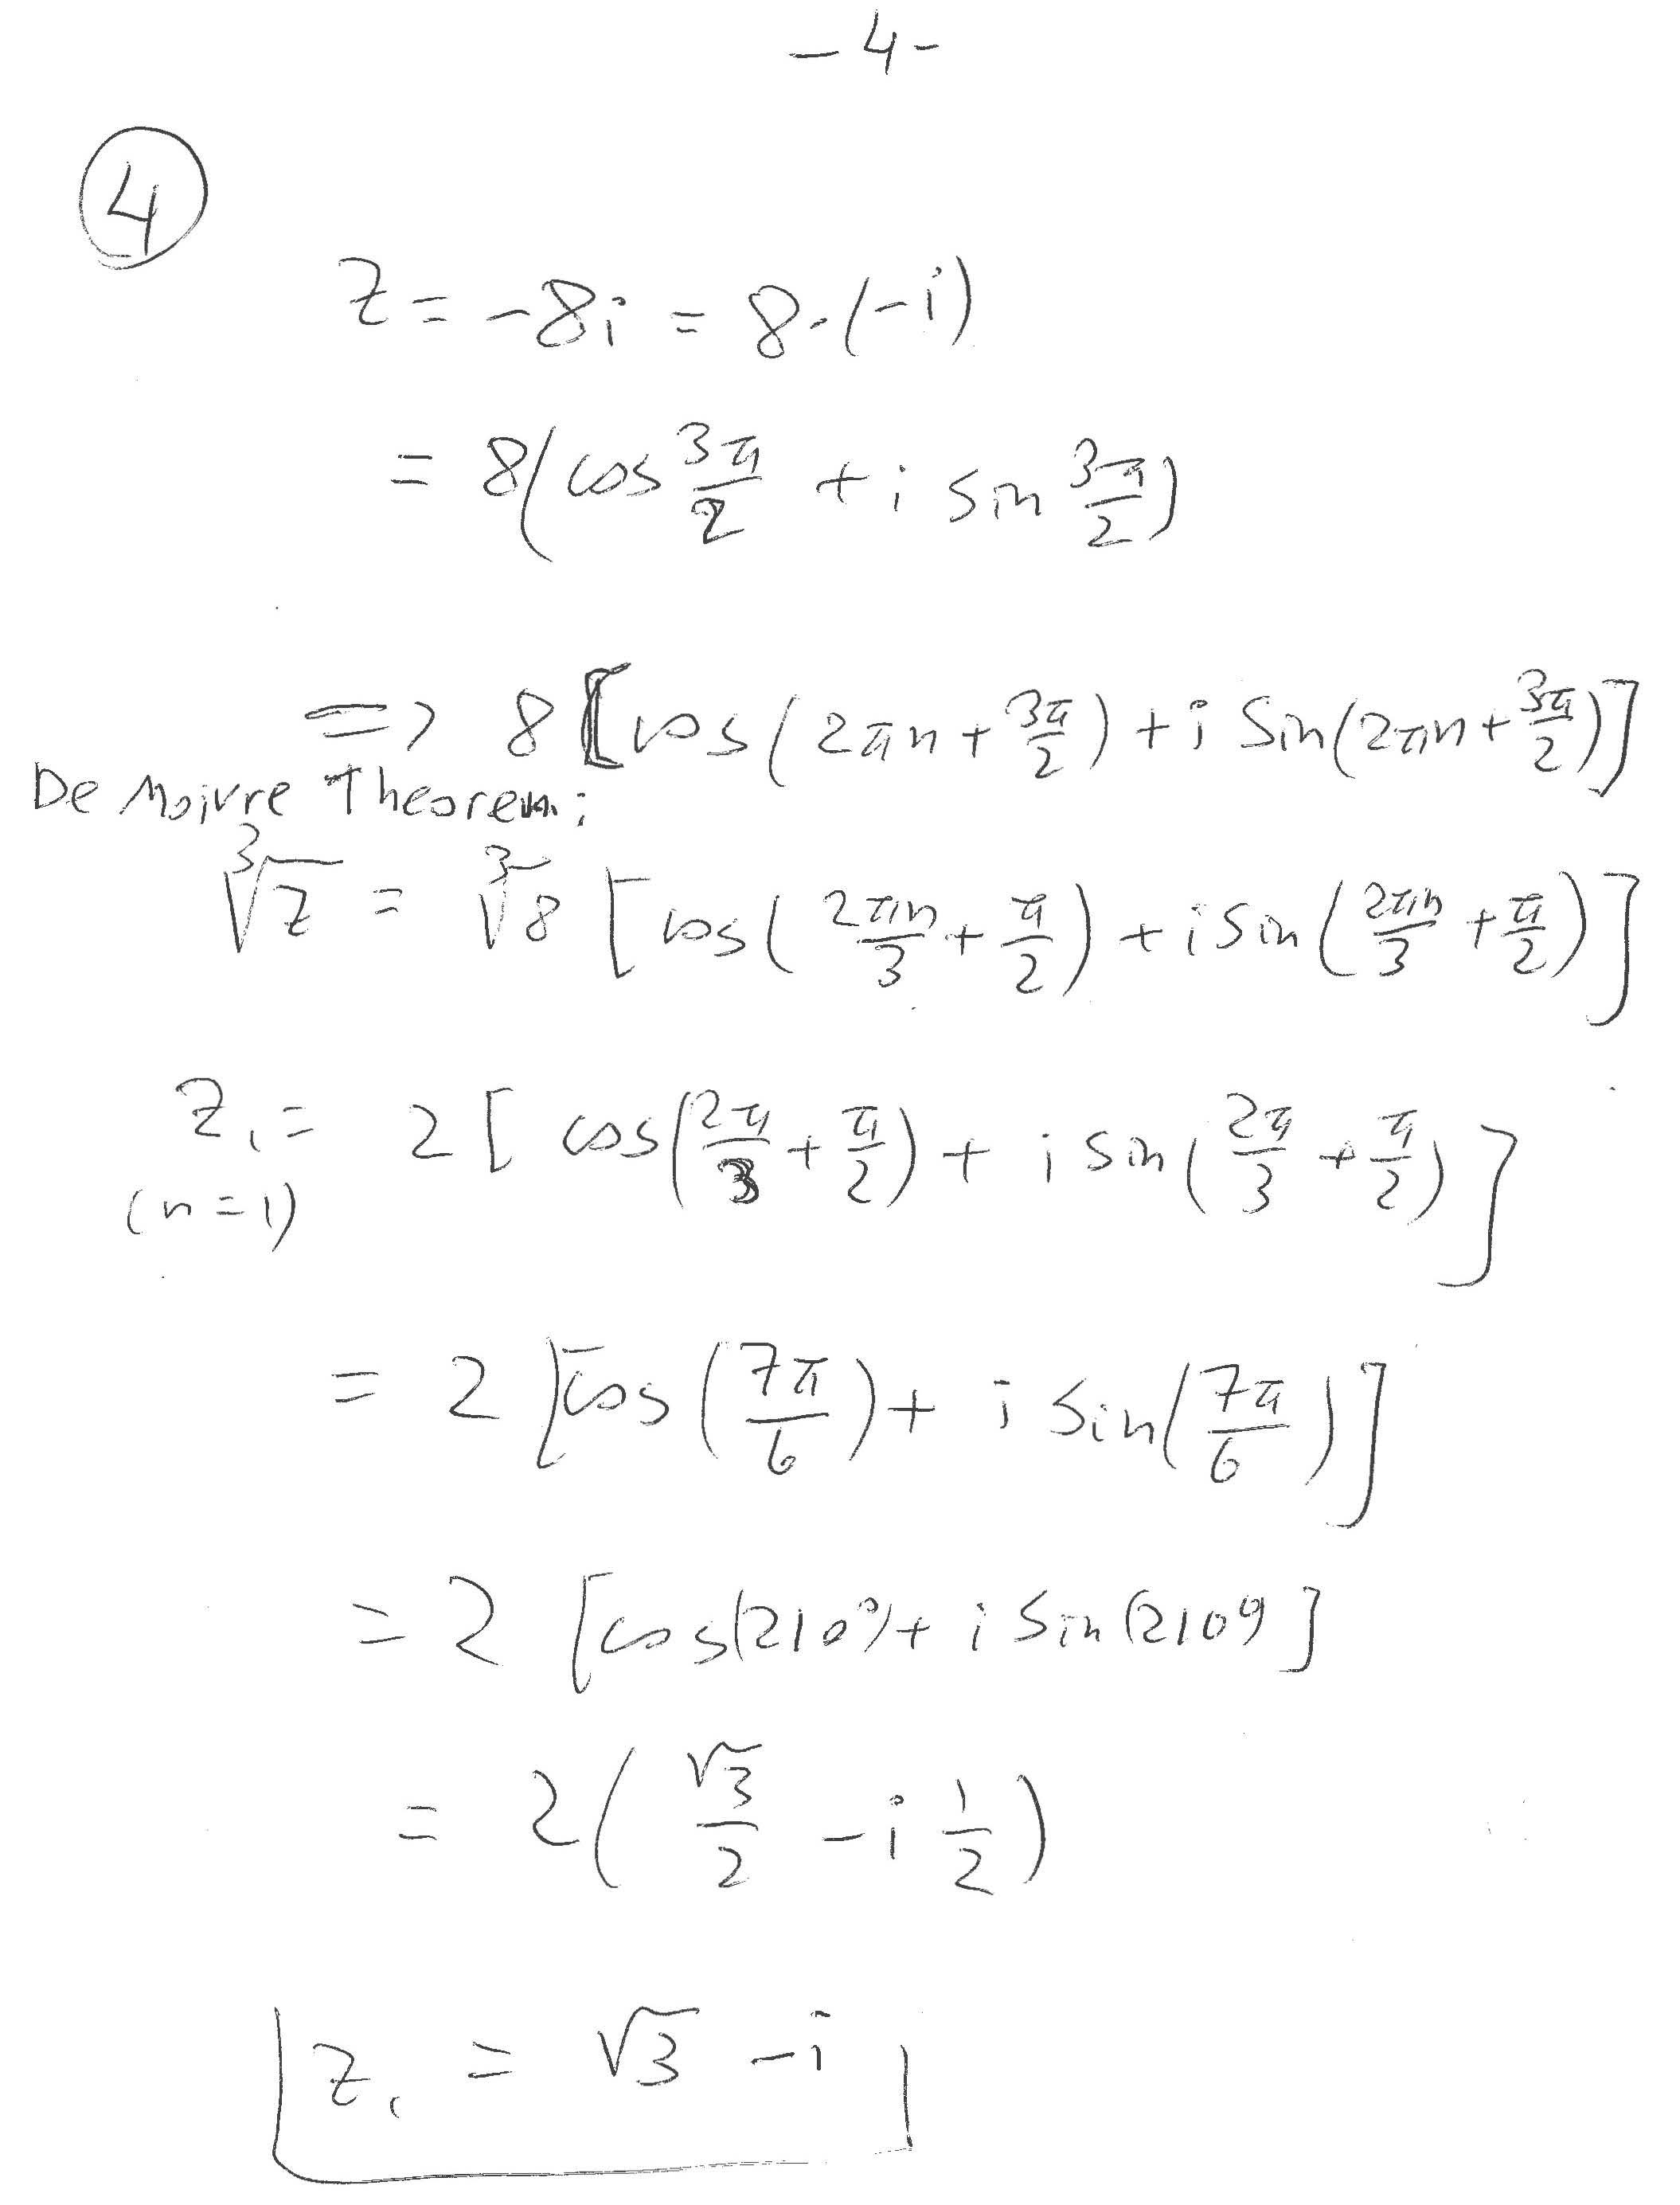 -4-
4
z = -8i = 8·(-i)
= 8(cos 3π/2 + i sin 3π/2)
=> 8[cos(2πn + 3π/2) + i Sin(2πn + 3π/2)]
De Moivre Theorem:
∛z = ∛8 [cos(2πn/3 + π/2) + i sin(2πn/3 + π/2)]
z₁ = 2[cos(2π/3 + π/2) + i sin(2π/3 + π/2)]
(n=1)
= 2[cos(7π/6) + i sin(7π/6)]
= 2[cos(210°) + i Sin(210°]
= 2(√3/2 - i 1/2)
z₁ = √3 - i